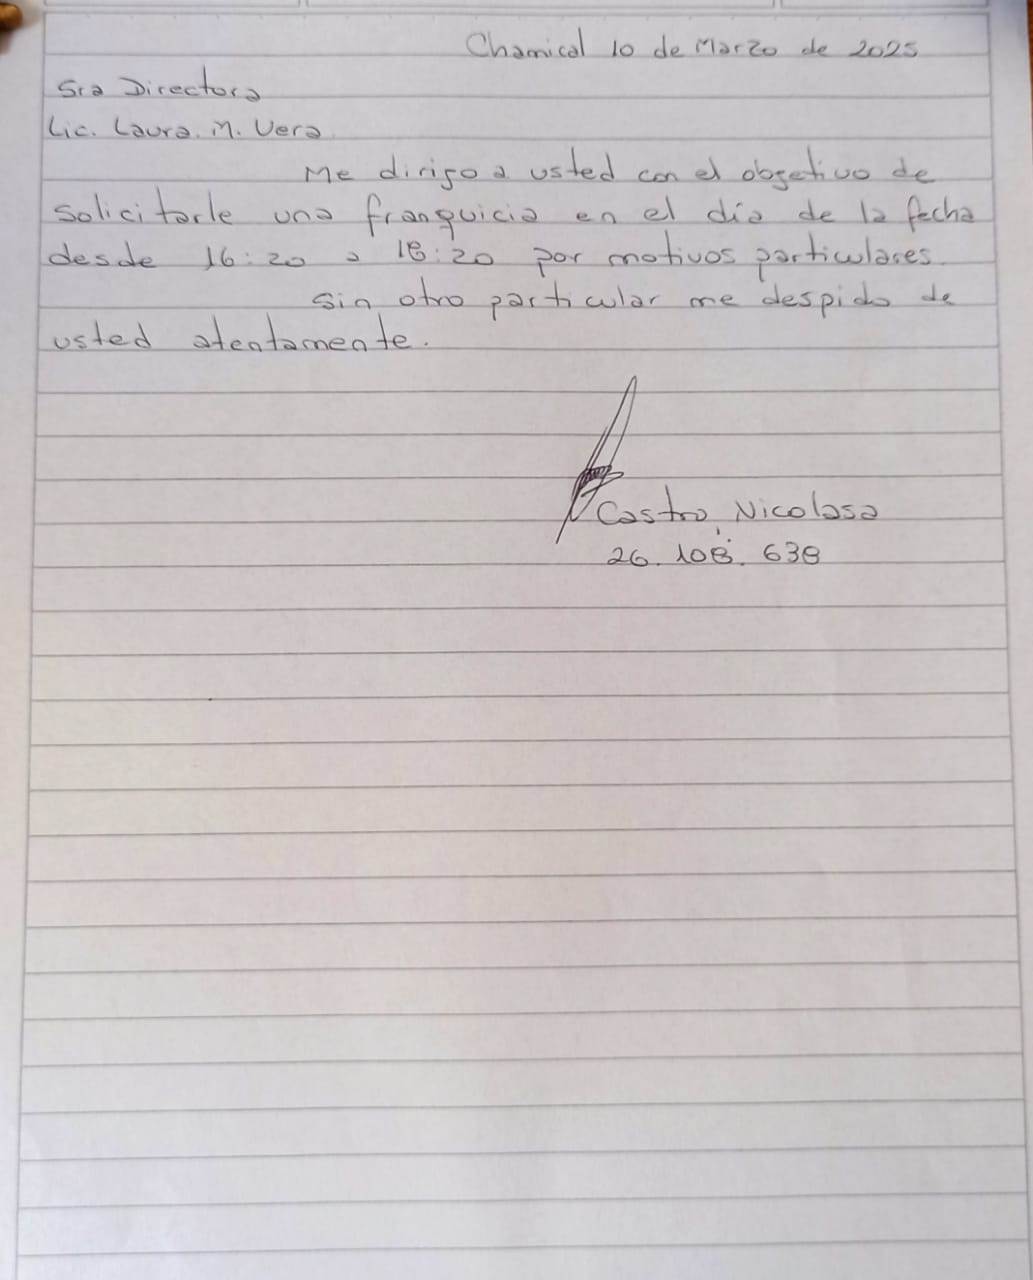 Chamical 10 de Marzo de 2025
Sra Directora
Lic. Laura. M. Vera
Me dirigo a usted con el obgetivo de
solicitarle una franquicia en el día de la fecha
desde 16:20 a 18:20 por motivos particulares.
Sin otro particular me despido de
usted atentamente.
Castro, Nicolasa
26.108.638